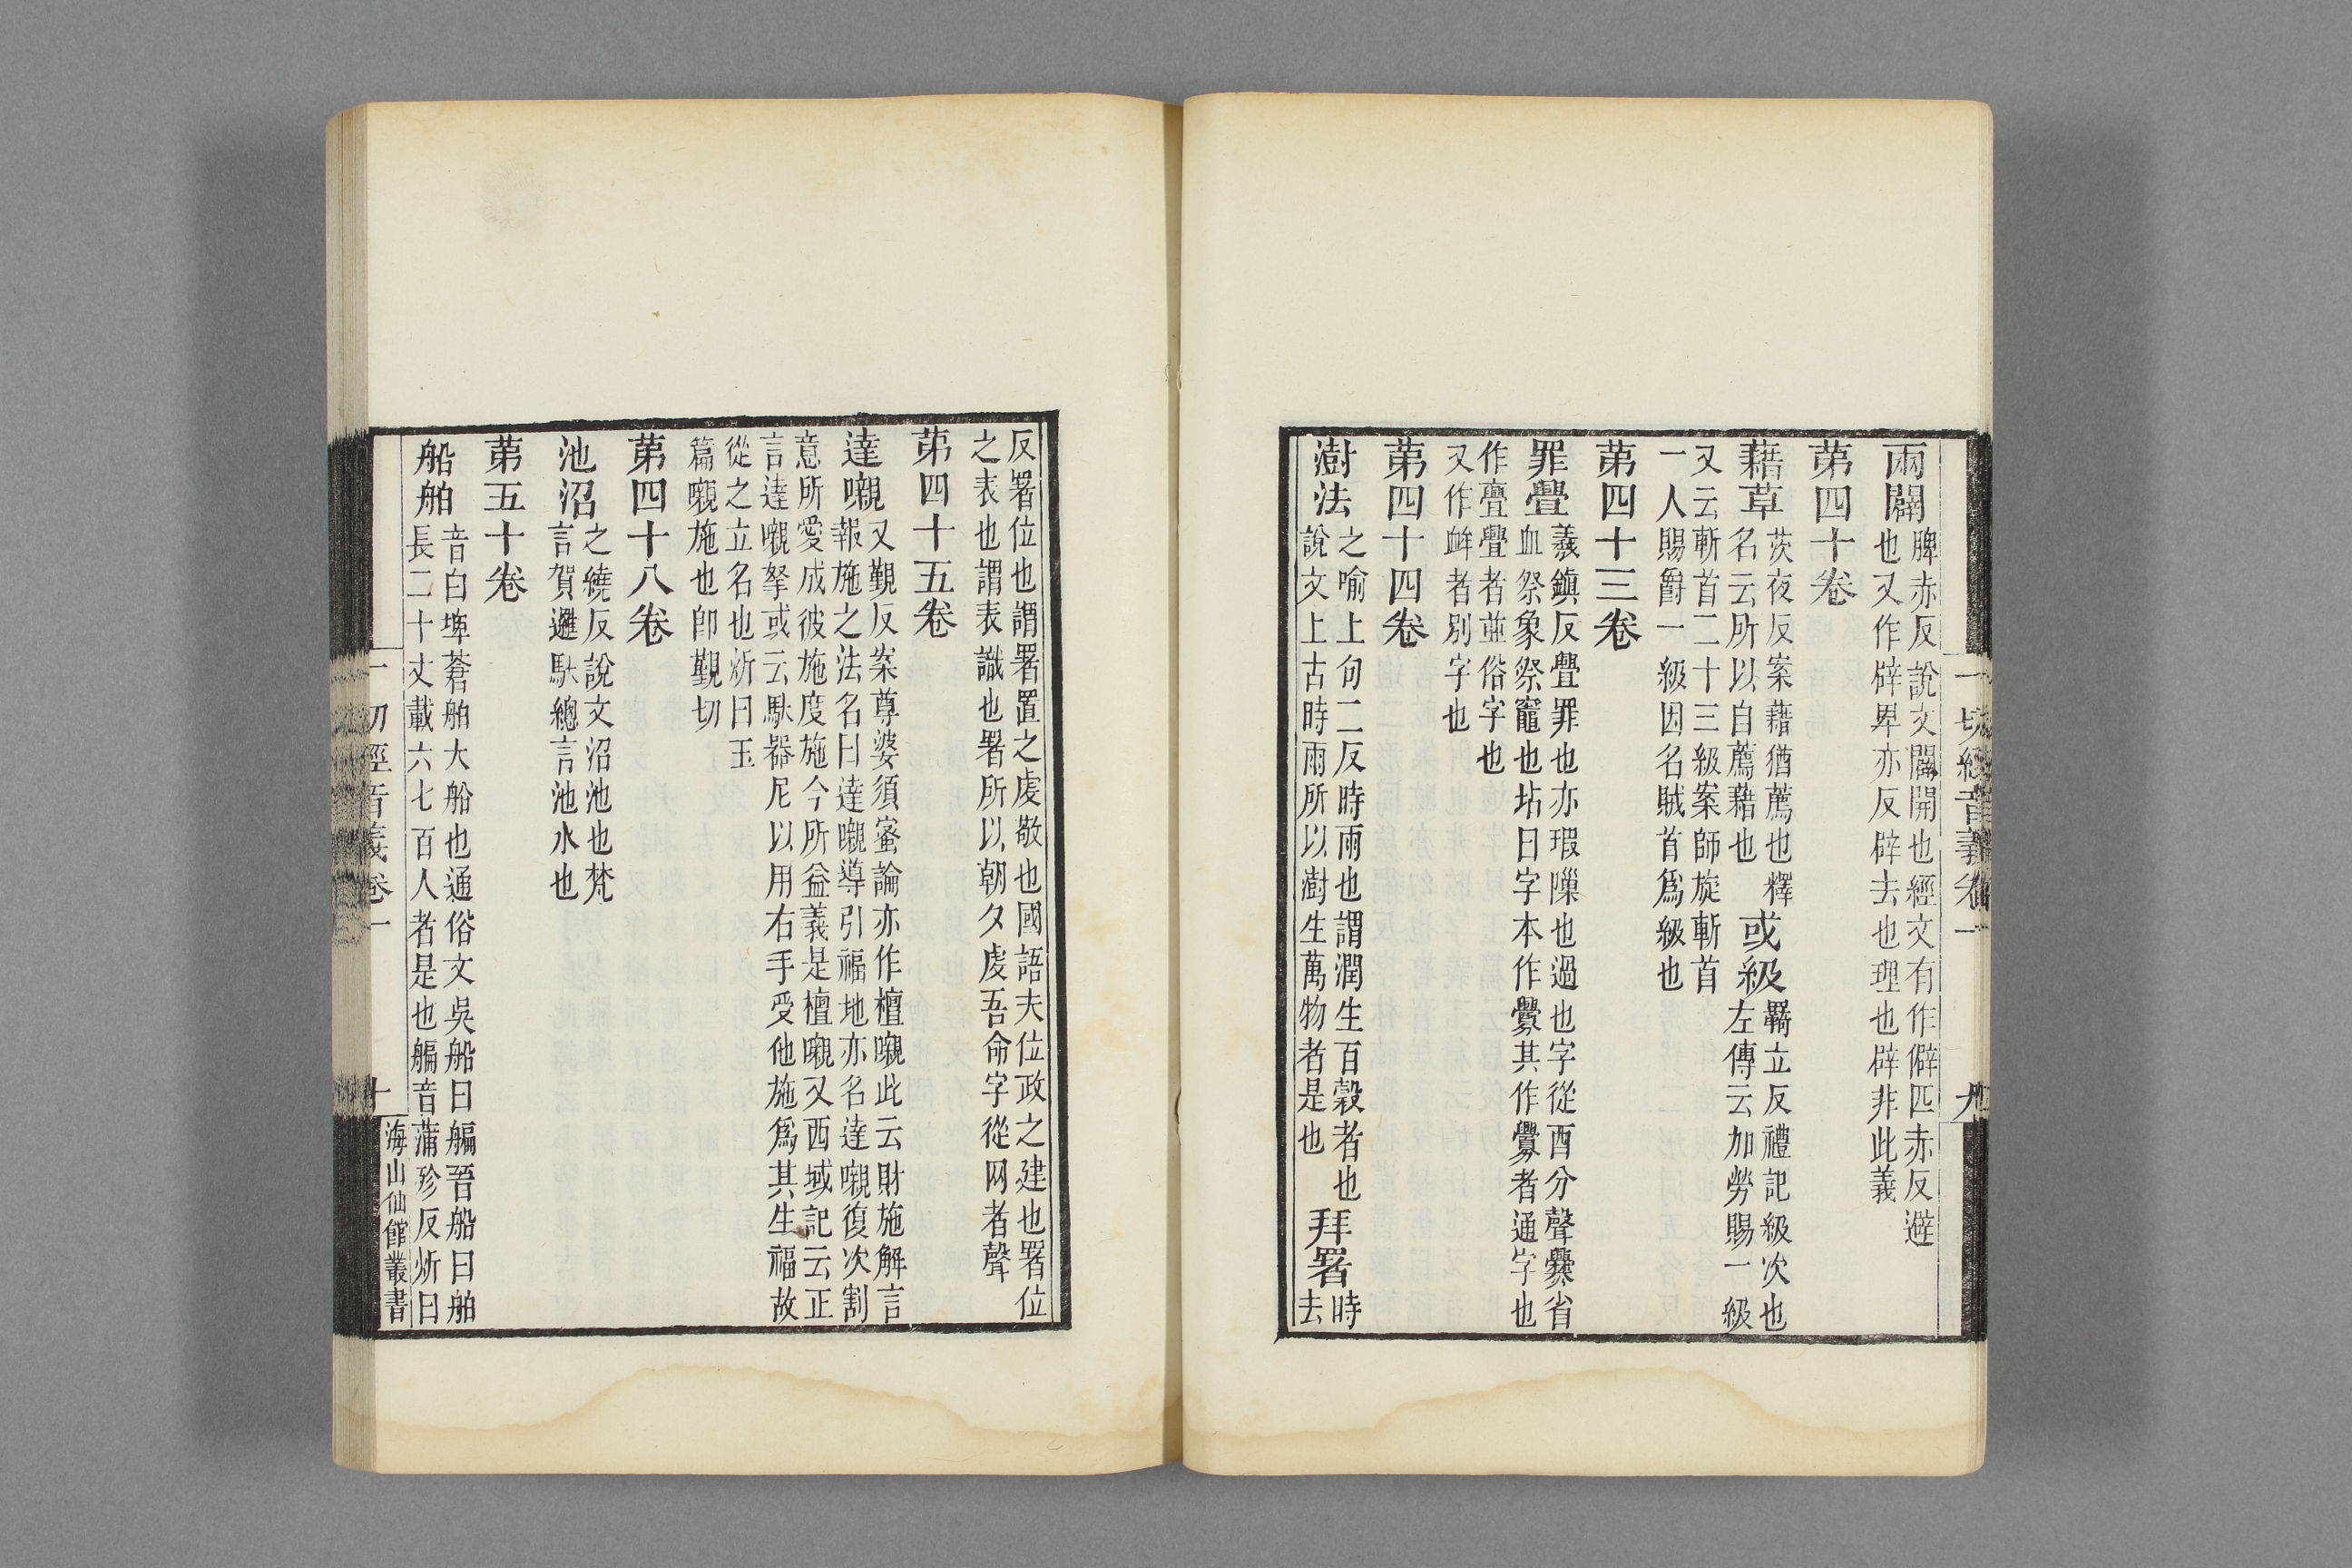 一切經音義卷一 九
兩闢 脾赤反說文闢開也經文有作僻匹赤反避
也又作辟卑亦反辟去也理也辟非此義
第四十卷
藉草 茨夜反案藉猶薦也釋
名云所以自薦藉也
或級 羇立反禮記級次也
左傳云加勞賜一級
又云斬首二十三級案師旋斬首
一人賜爵一級因名賊首爲級也
第四十三卷
罪舋 羲鎮反舋罪也亦瑕隟也過也字從酉分聲爨省
血祭象祭竈也坫曰字本作釁其作釁者通字也
作亹舋者並俗字也
又作衅者別字也
第四十四卷
澍法 之喻上句二反時雨也謂潤生百穀者也
說文上古時雨所以澍生萬物者是也
拜署 時
去
反署位也謂署置之處敬也國語夫位政之建也署位
之表也謂表識也署所以朝夕虔吾命字從网者聲
第四十五卷
達嚫 叉覲反案尊婆須蜜論亦作檀嚫此云財施解言
報施之法名曰達嚫導引福地亦名達嚫復次割
意所愛成彼施度施今所益義是檀嚫又西域記云正
言達嚫拏或云馱器尼以用右手受他施爲其生福故
從之立名也炘曰玉
篇嚫施也卽覲切
第四十八卷
池沼 之繞反說文沼池也梵
言賀邏馱總言池水也
第五十卷
船舶 音白埤蒼舶大船也通俗文吳船曰艑晉船曰舶
長二十丈載六七百人者是也艑音蒲殄反炘曰
一切經音義卷一 十 海山仙館叢書